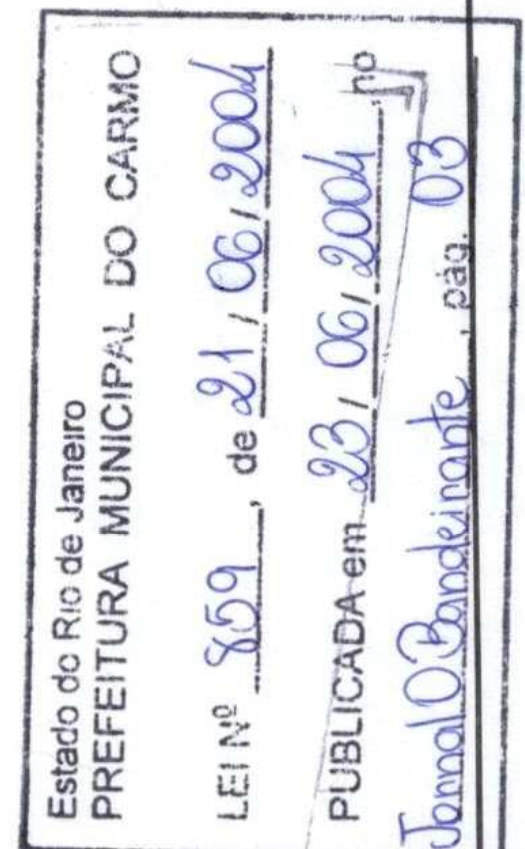 Estado do Rio de Janeiro
PREFEITURA MUNICIPAL DO CARMO
LEI Nº 859, de 21/06/2004
PUBLICADA em 23/06/2004, no
Jornal O Bandeirante, pág. 03